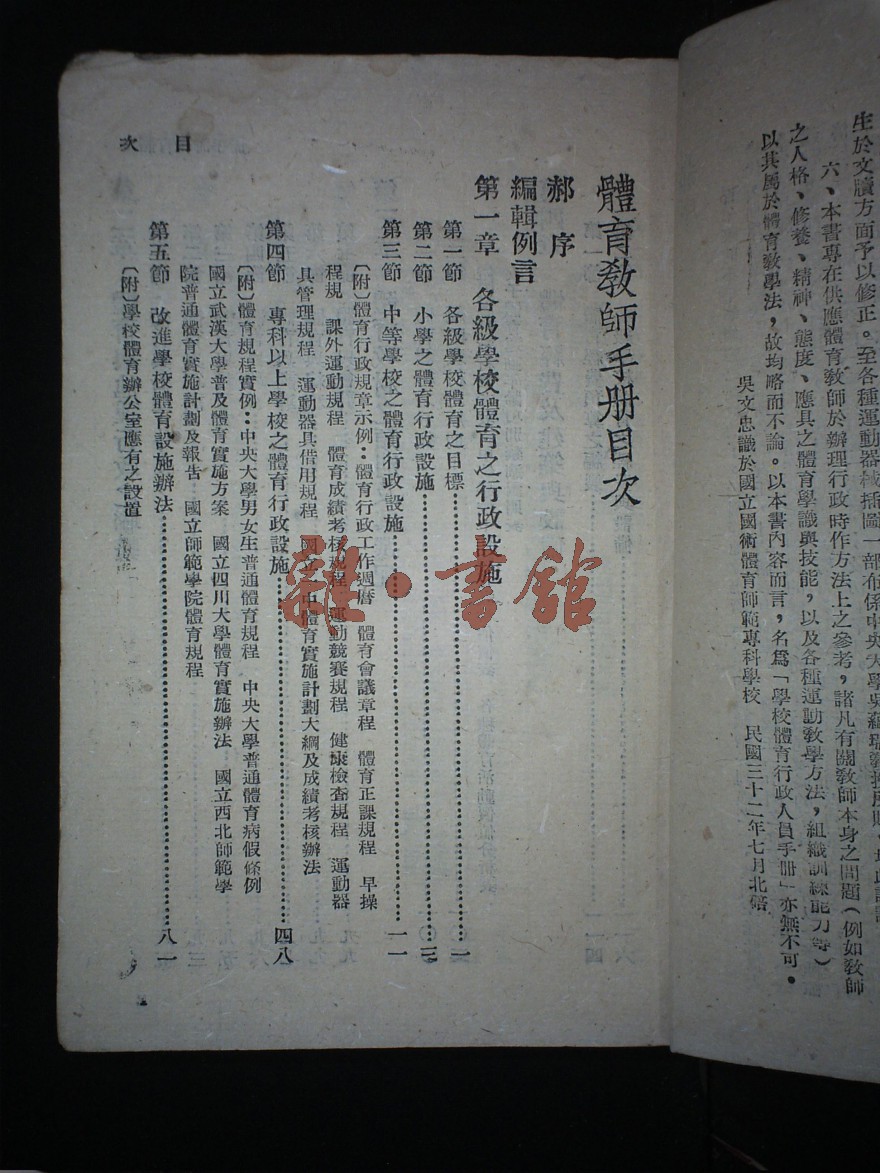 生於文牘方面予以修正。至各種運動器械插圖一部布係中央大學吳蘊瑞教授
六、本書專在供應體育教師於辦理行政時作方法上之參考，諸凡有關教師本身之問題（例如教師
之人格、修養、精神、態度、應具之體育學識與技能，以及各種運動教學方法，組織訓練能力等）
以其屬於體育教學法，故均略而不論。以本書內容而言，名爲「學校體育行政人員手册」亦無不可。
吳文忠識於國立國術體育師範專科學校　民國三十二年七月北碚
體育教師手册目次
郝序
編輯例言
第一章　各級學校體育之行政設施
第一節　各級學校體育之目標……一
第二節　小學之體育行政設施……三
第三節　中等學校之體育行政設施……一一
〔附〕體育行政規章示例：體育行政工作週曆　體育會議章程　體育正課規程　早操
程規　課外運動規程　體育成績考核規程　運動競賽規程　健康檢查規程　運動器
具管理規程　運動器具借用規程　國立一中體育實施計劃大綱及成績考核辦法
第四節　專科以上學校之體育行政設施……四八
〔附〕體育規程實例：中央大學男女生普通體育規程　中央大學普通體育病假條例
國立武漢大學普及體育實施方案　國立四川大學體育實施辦法　國立西北師範學
院普通體育實施計劃及報告　國立師範學院體育規程
第五節　改進學校體育設施辦法……八一
〔附〕學校體育辦公室應有之設置
目次
雜·書館